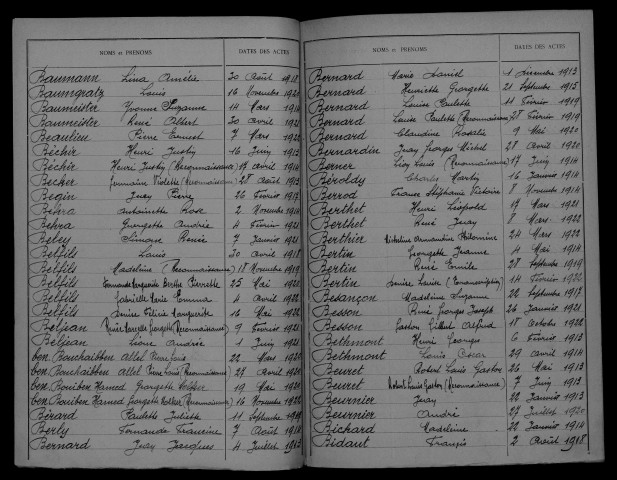 NOMS et PRÉNOMS DATES DES ACTES
Baumann Lina Amélie 30 Août 1918
Baumgratz Louis 16 Novembre 1920
Baumeister Yvonne Suzanne 14 Mars 1914
Baumeister René Albert 30 Avril 1921
Beaulieu Pierre Ernest 7 Mars
Béchir Henri Justin 16 Juin 1913
Béchir Henri Justin (Reconnaissance) 17 Avril 1914
Becker Germaine Violette (Reconnaissance) 28 Août 1913
Begin Jean Pierre 26 Février 1917
Behra Antoinette Rose 2 Novembre
Behra Georgette Andrée 4 Février 1921
Beley Simone Renée 7 Janvier 1921
Belfils Louis 30 Avril 1918
Belfils Madeleine (Reconnaissance) 18 Novembre 1919
Belfils Berthe Pierrette 25 Mai 1920
Belfils Gabrielle Marie Emma 4 Avril 1922
Belfils Denise Félicie Marguerite 16 Mai 1922
Beljean Georgette (Reconnaissance) 9 Février 1921
Beljean Lione Andrée 1 Juin 1921
ben Bouchaibben Allel Pierre Louis 22 Mars 1920
ben Bouchaibben Allel Pierre Louis (Reconnaissance) 27 Avril 1920
ben Bouiben Hamed Georgette 19 Mai 1920
ben Bouiben Hamed Georgette (Reconnaissance) 16 Novembre 1922
Bérard Paulette Juliette 11 Septembre
Berly Fernande Francine 7 Août 1914
Bernard Jean Jacques 4 Juillet 1913
NOMS et PRÉNOMS DATES DES ACTES
Bernard Marie Daniel 1 Décembre 1913
Bernard Henriette Georgette 21 Septembre 1915
Bernard Louise Paulette 11 Février 1919
Bernard Louise Paulette (Reconnaissance) 28 Février 1919
Bernard Claudine Rosalie 9 Mai 1920
Bernardin Jean Georges Michel 28 Avril 1920
Berner Léon Louis (Reconnaissance) 17 Juin 1914
Béroldy Charles Martin 16 Janvier 1914
Berrod France Stéphanie Victoire 8 Novembre 1914
Berthet Henri Léopold 19 Mars 1921
Berthet René Jean 8 Mars 1922
Berthier Antonine 24 Mars 1922
Bertin Georgette Jeanne 4 Mai 1914
Bertin René Emile 28 Septembre 1919
Bertin Denise Louise 14 Février 1922
Besançon Madeleine Suzanne 22 Septembre 1917
Besson René Georges Joseph 26 Janvier 1921
Besson Gaston Gilbert Alfred 18 Octobre 1922
Bethmont Henri Georges 6 Février 1913
Bethmont Louis Oscar 29 Avril 1914
Beuret Robert Louis Gaston 26 Mai 1913
Beuret Robert Louis Gaston (Reconnaissance) 7 Juin 1913
Beurnier Jean 22 Janvier 1913
Beurnier André 27 Juillet 1920
Bichard Madeleine 22 Janvier 1914
Bidaut Francis 2 Août 1918